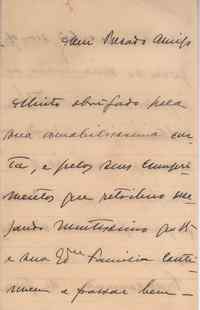 Meu Presado Amigo
Muito obrigado pela
sua amabilissima car-
ta, e pelos seus cumpri-
mentos que retribuo
muitissimo que V.
e sua Ex.ma Familia conti-
nuem a passar bem –